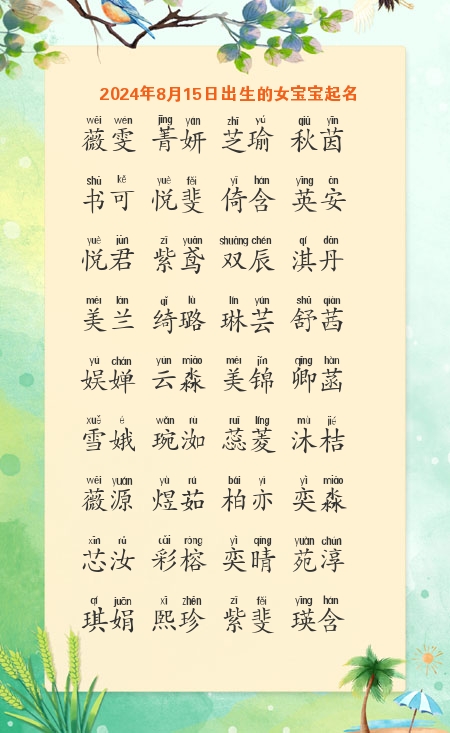 2024年8月15日出生的女宝宝起名
wēi wén jīng yán zhī yú qiū yīn
薇雯 菁妍 芝瑜 秋茵
shū kě yuè fěi yǐ hán yīng ān
书可 悦斐 倚含 英安
yuè jūn zǐ yuān shuāng chén qí dān
悦君 紫鸢 双辰 淇丹
měi lán qǐ lù lín yún shū qiàn
美兰 绮璐 琳芸 舒茜
yú chán yún miǎo měi jǐn qīng hàn
娱婵 云淼 美锦 卿菡
xuě é wǎn rù ruǐ líng mù jié
雪娥 琬洳 蕊菱 沐桔
wēi yuán yù rú bǎi yì yì miǎo
薇源 煜茹 柏亦 奕淼
xīn rǔ cǎi róng yì qíng yuàn chún
芯汝 彩榕 奕晴 苑淳
qí juān xī zhēn zǐ fěi yīng hán
琪娟 熙珍 紫斐 瑛含